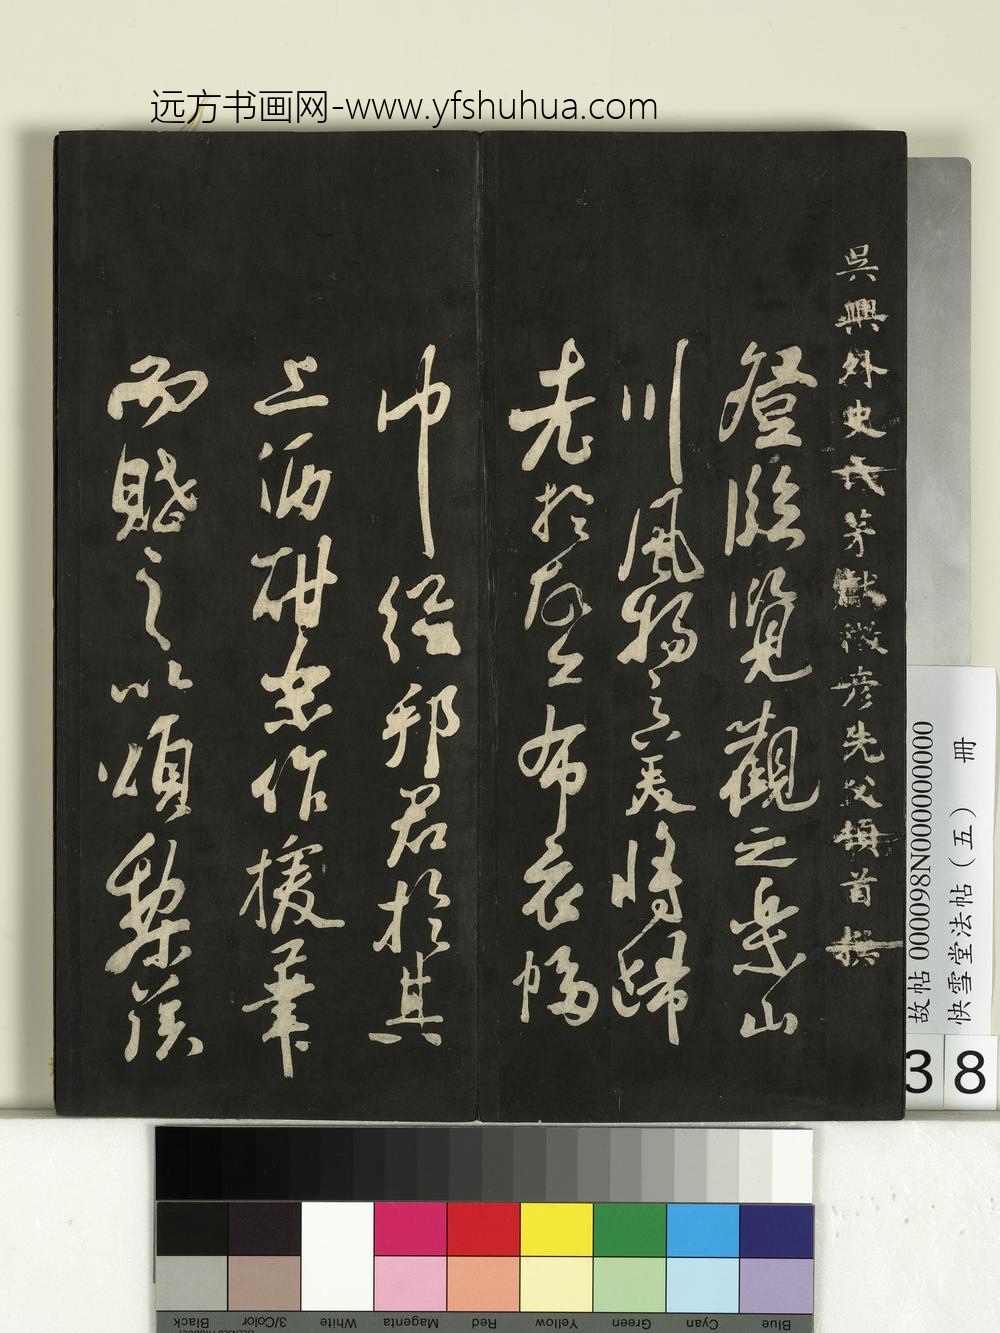 远方书画网-www.yfshuhua.com
吳興外史氏茅獻徵彥先父頓首撰
登臨覽觀之樂山
川風物之美將歸
老於故丘布衣幅
巾從邦君於其
上酒酣樂作援筆
而賦之以頌黎侯
故帖 000098N000000000
快雪堂法帖（五） 冊
38
Black
3/Color
White
Magenta
Red
Yellow
Green
Cyan
Blue